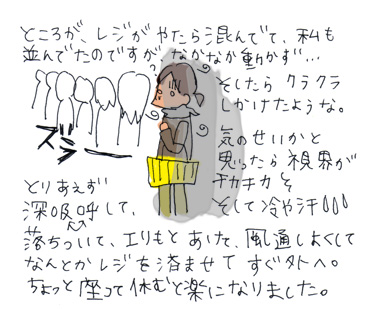 ところが、レジがやたら混んでて、私も
並んでたのですが、なかなか動かず…
そしたら クラクラ
しかけたような。
ズラー
気のせいかと
思ったら視界が
チカチカ そ
そして冷や汗
とりあえず
深呼吸して、
落ちついて、エリもと あけて、風通しよくして
なんとかレジを済ませて すぐ外へ。
ちょっと座って休むと楽になりました。